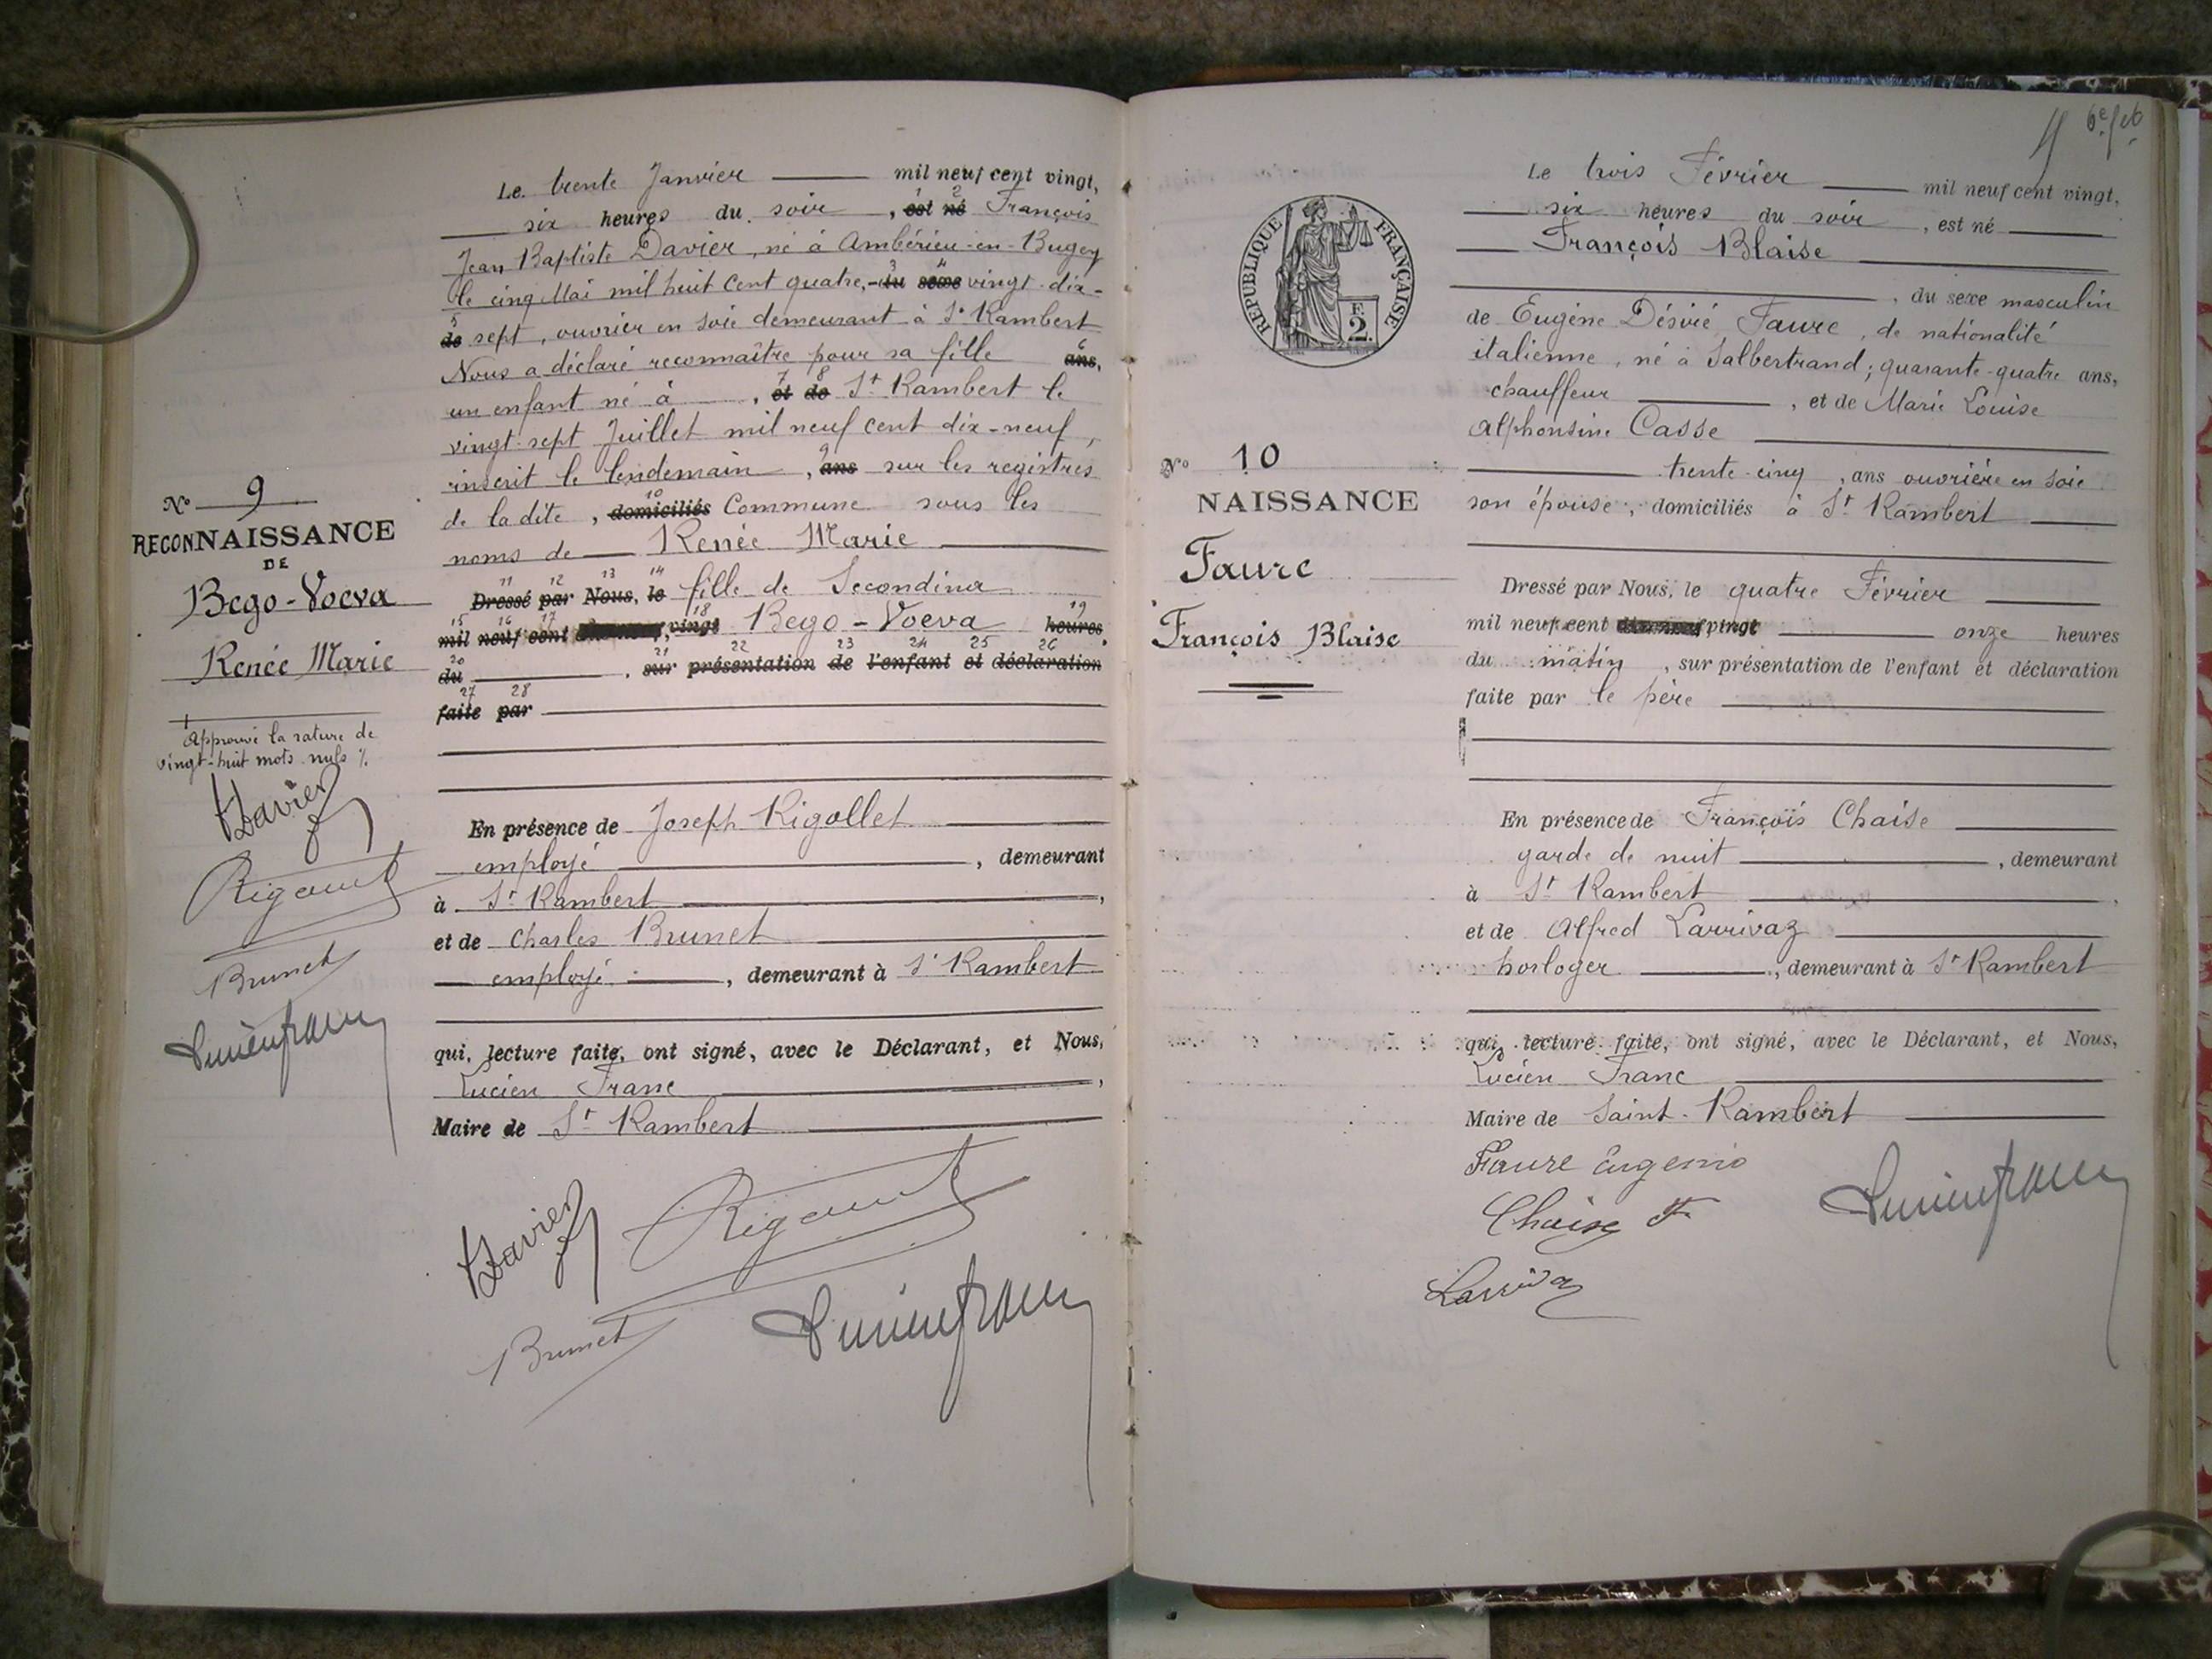 Le trente Janvier mil neuf cent vingt,
six heures du soir, est né François
Jean Baptiste Davier, né à Ambérieu-en-Bugey
le cinq Mai mil huit cent quatre, du sexe vingt-dix-
de sept, ouvrier en soie demeurant à St Rambert
Nous a déclaré reconnaître pour sa fille ans,
un enfant né à , et de St Rambert le
vingt-sept Juillet mil neuf cent dix-neuf,
inscrit le lendemain, ans sur les registres
de la dite, domiciliés Commune sous les
noms de Renée Marie
Dressé par Nous, le fille de Secondina
mil neuf cent vingt Bego-Voeva heures
du , sur présentation de l'enfant et déclaration
faite par
En présence de Joseph Rigollet
employé , demeurant
à St Rambert ,
et de Charles Brunet
employé , demeurant à St Rambert
qui, lecture faite, ont signé, avec le Déclarant, et Nous,
Lucien Franc ,
Maire de St Rambert
Davier
Brunet
No 9
RECONNAISSANCE
DE
Bego-Voeva
Renée Marie
Approuvé la rature de
vingt-huit mots nuls
Davier
Brunet
1 2 3 4 5 6 7 8 9 10 11 12 13 14 15 16 17 18 19 20 21 22 23 24 25 26 27 28
RÉPUBLIQUE FRANÇAISE
F.
2.
No 10
NAISSANCE
Faure
François Blaise
Le trois Février mil neuf cent vingt,
six heures du soir, est né
François Blaise
, du sexe masculin
de Eugène Désiré Faure, de nationalité
italienne, né à Salbertrand; quarante-quatre ans,
chauffeur , et de Marie Louise
Alphonsine Casse
trente-cinq, ans ouvrière en soie
son épouse, domiciliés à St Rambert
Dressé par Nous, le quatre Février
mil neuf cent vingt onze heures
du matin, sur présentation de l'enfant et déclaration
faite par le père
En présence de François Chaise
garde de nuit , demeurant
à St Rambert ,
et de Alfred Larrivaz
horloger , demeurant à St Rambert
qui, lecture faite, ont signé, avec le Déclarant, et Nous,
Lucien Franc
Maire de Saint-Rambert
Faure Eugenio
Chaise F.